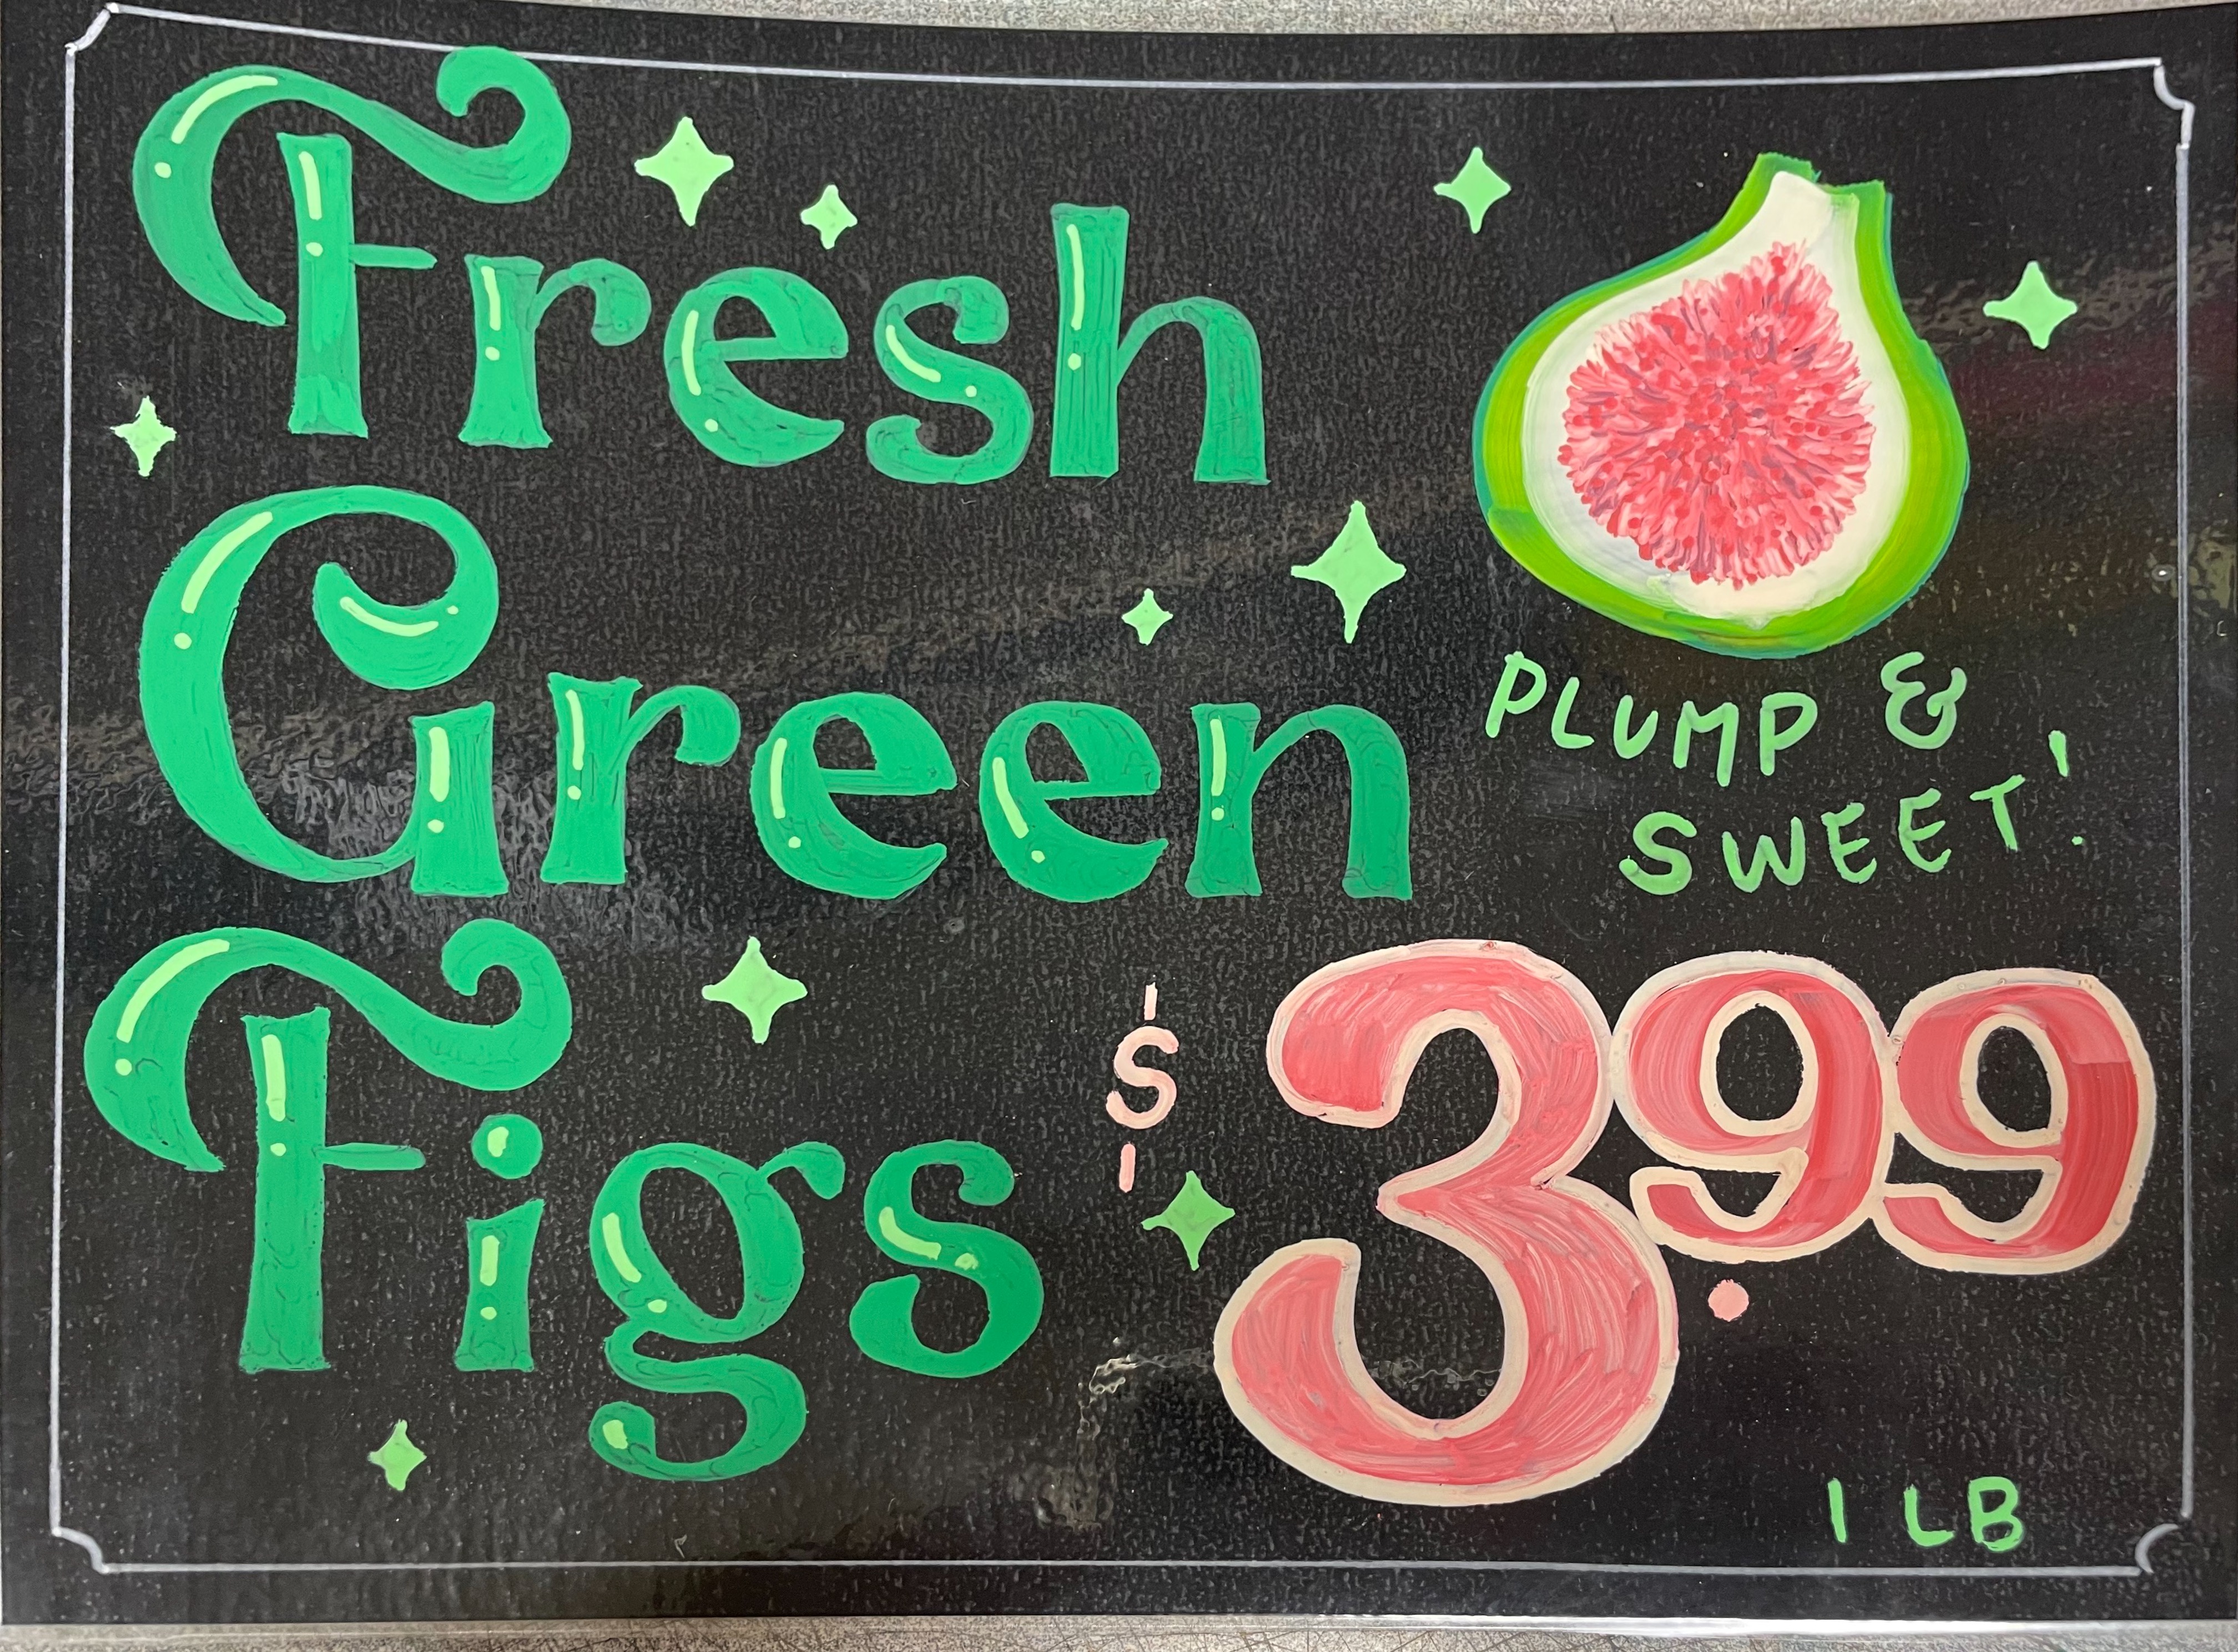 Fresh
Green
Figs
PLUMP &
SWEET!
$3.99
1 LB